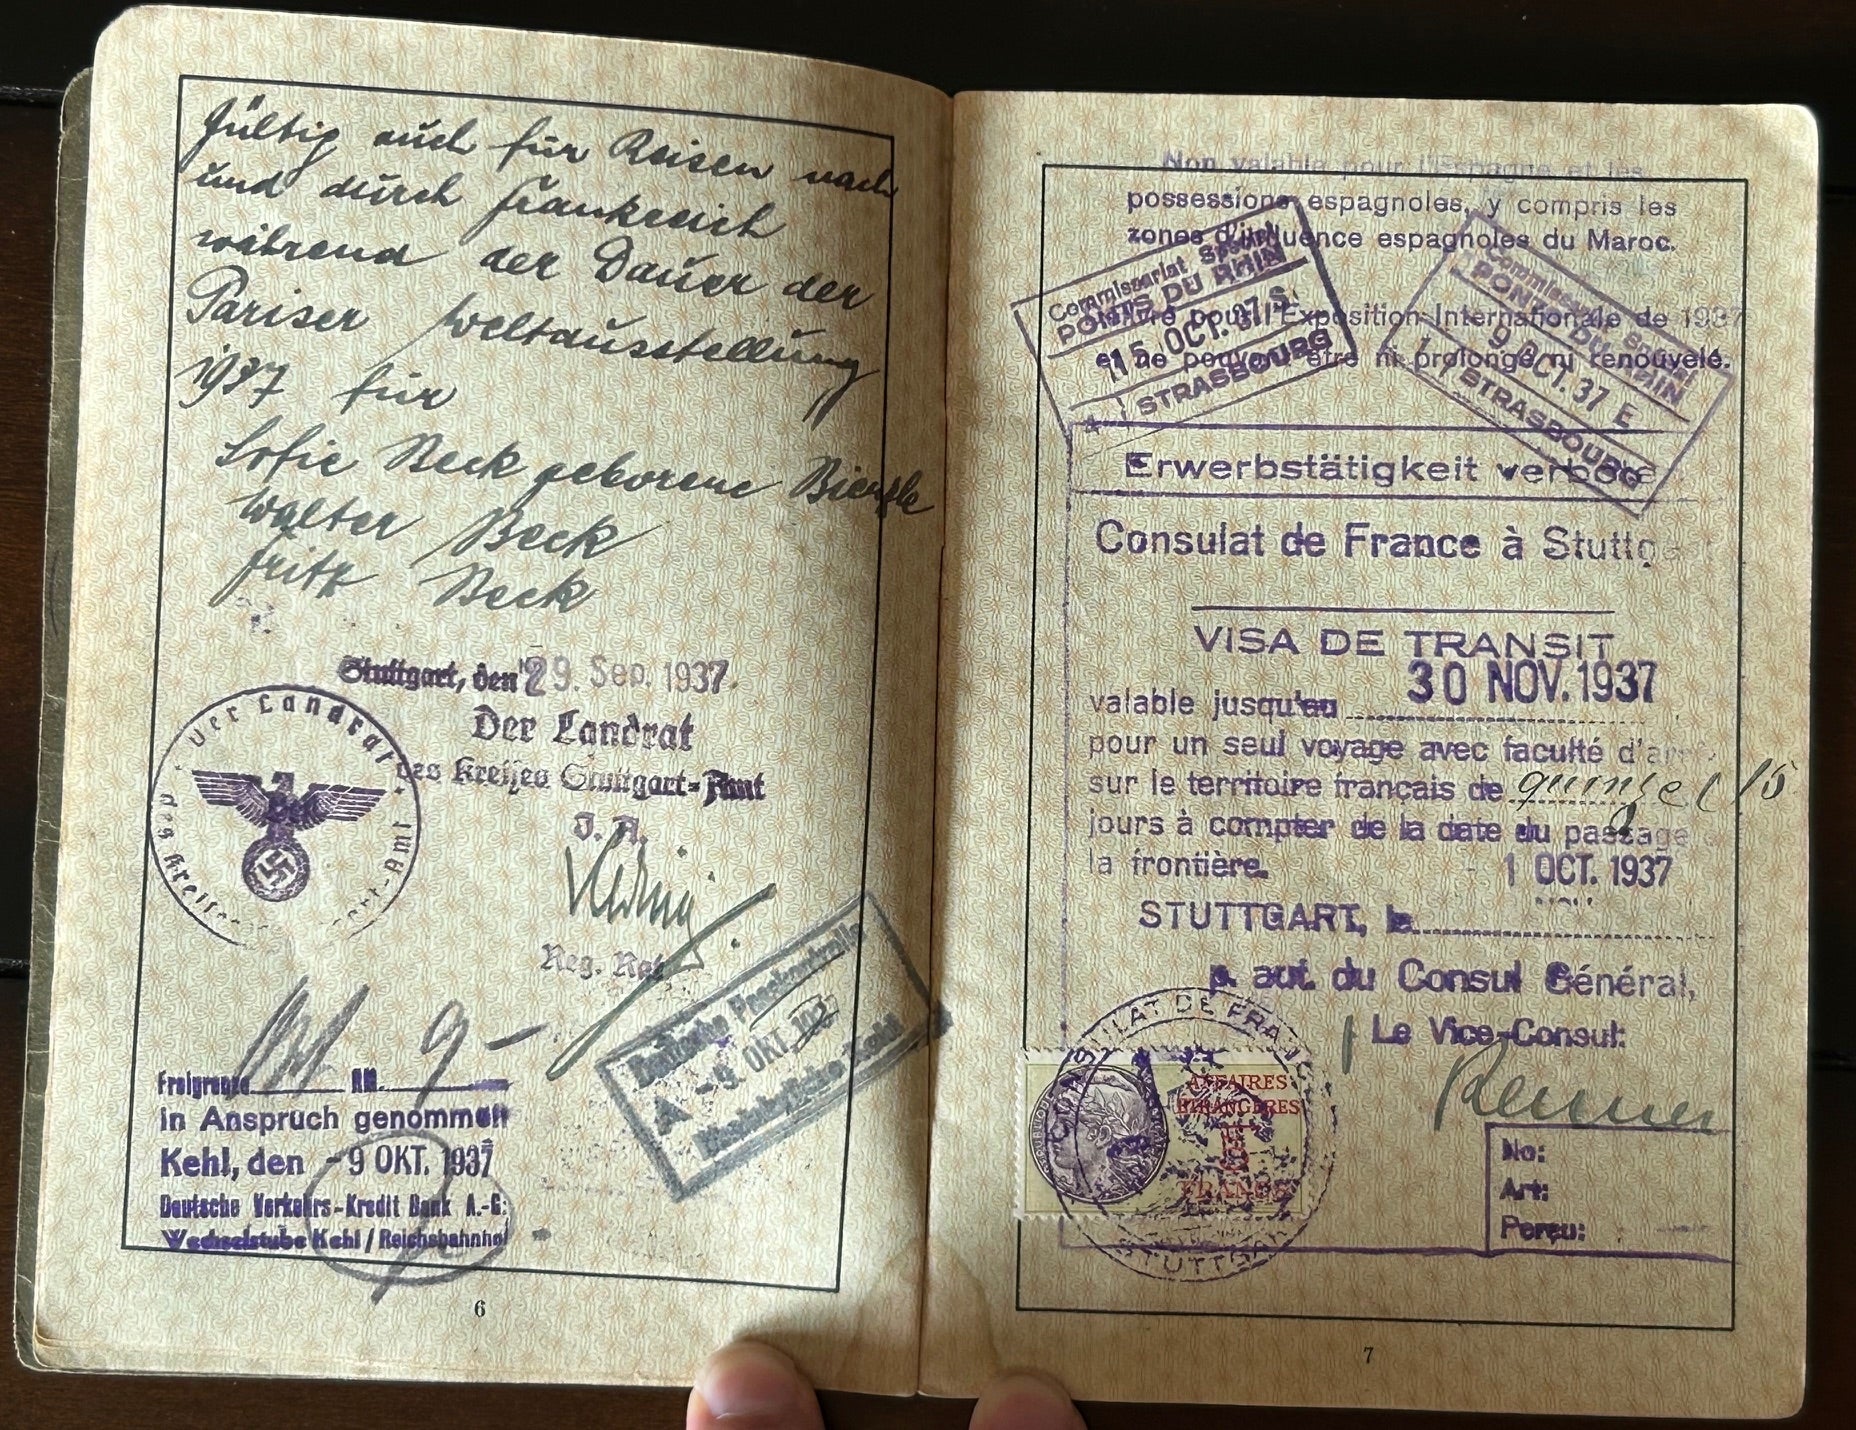 Gültig auch für Reisen nach
und durch Frankreich
während der Dauer der
Pariser Weltausstellung
1937 für
Sofie Beck geborene
Walter Beck
Fritz Beck
Stuttgart, den 29. Sep. 1937.
Der Landrat
des Kreises Stuttgart-Amt
J. A.
Reg. Rat
Der Landrat
des Kreises Stuttgart-Amt
9 -
Freigrenze RM.
in Anspruch genommen
Kehl, den - 9 OKT. 1937
Deutsche Verkehrs-Kredit Bank A.-G.
Wechselstube Kehl / Reichsbahnhof
Deutsche Passkontrolle
A - 9. OKT. 1937
Kehl
6
Non valable pour l'Espagne et les
possessions espagnoles, y compris les
zones d'influence espagnoles du Maroc.
pour l'Exposition Internationale de 1937
et ne pouvant être ni prolongé ni renouvelé.
Commissariat Spécial
PONTS DU RHIN
15 OCT. 37 S.
STRASBOURG
Commissariat Spécial
PONTS DU RHIN
9 OCT. 37 E
STRASBOURG
Erwerbstätigkeit
Consulat de France à Stuttgart
VISA DE TRANSIT
30 NOV. 1937
valable jusqu'au
pour un seul voyage avec faculté
sur le territoire français de quinze (15
jours à compter de la date du passage
la frontière.
1 OCT. 1937
STUTTGART, le
p. aut. du Consul Général,
Le Vice-Consul:
CONSULAT DE FRANCE
STUTTGART
AFFAIRES
ETRANGERES
FRANCS
No:
Art:
Perçu:
7